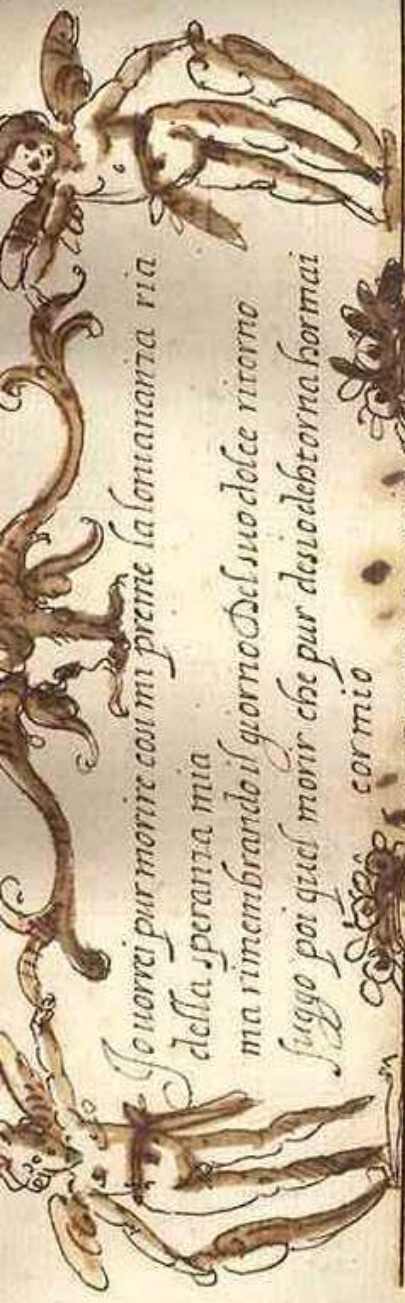 Io uorrei pur morire cosi mi preme la lontananza ria
della speranza mia
ma rimembrando il giorno Del suo dolce ritorno
fuggo poi quel morir che pur desio deh torna hormai
cor mio